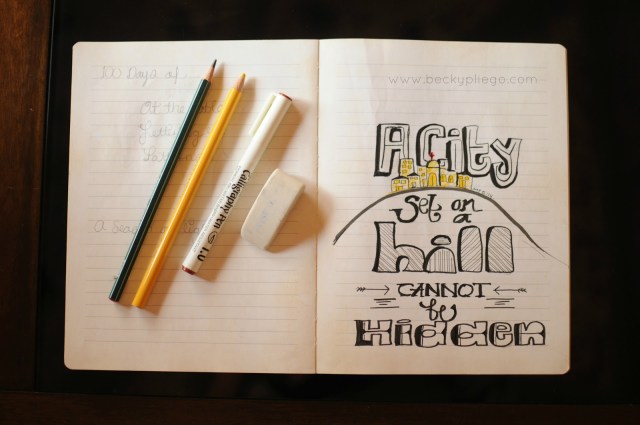 100 Days of
At the
A
Calligraphy Pen
www.beckypliego.com
A City
Set on
a
hill
CANNOT
be
Hidden